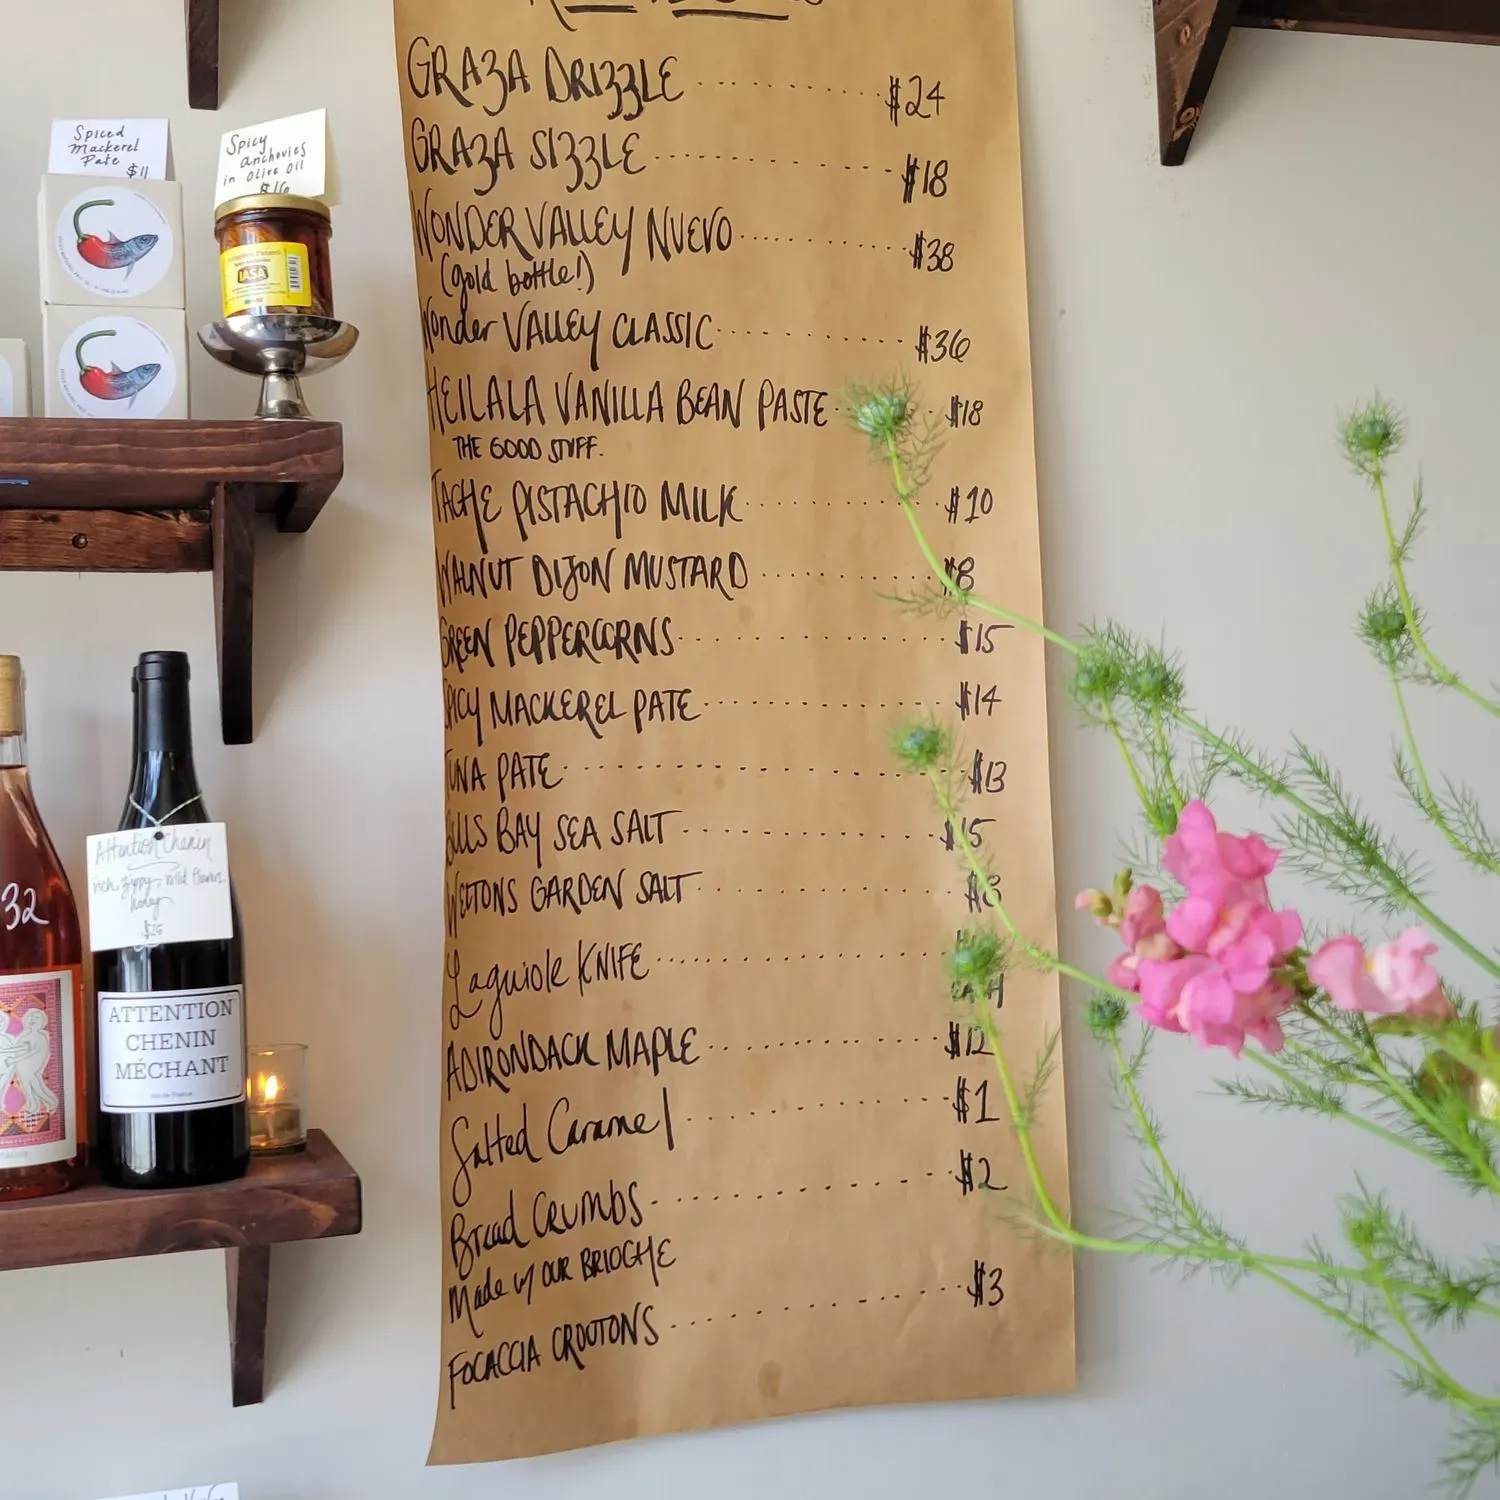 GRAZA DRIZZLE $24
GRAZA SIZZLE $18
WONDER VALLEY NUEVO $38
(gold bottle!)
Wonder VALLEY CLASSIC $36
HEILALA VANILLA BEAN PASTE $18
THE GOOD STUFF.
TACHE PISTACHIO MILK $10
WALNUT DIJON MUSTARD $8
GREEN PEPPERCORNS $15
SPICY MACKEREL PATE $14
TUNA PATE $13
BAY SEA SALT $15
GARDEN SALT $8
Laguiole KNIFE
ADIRONDACK MAPLE $12
Salted Caramel $1
Bread CRUMBS $2
Made w/ OUR BRIOCHE
FOCACCIA CROUTONS $3
Spiced
Mackerel
Pate
$11
Spicy
anchovies
in Olive Oil
$16
IASA
32
Attention Chenin
rich, zippy, mild flowers.
honey
ATTENTION
CHENIN
MÉCHANT